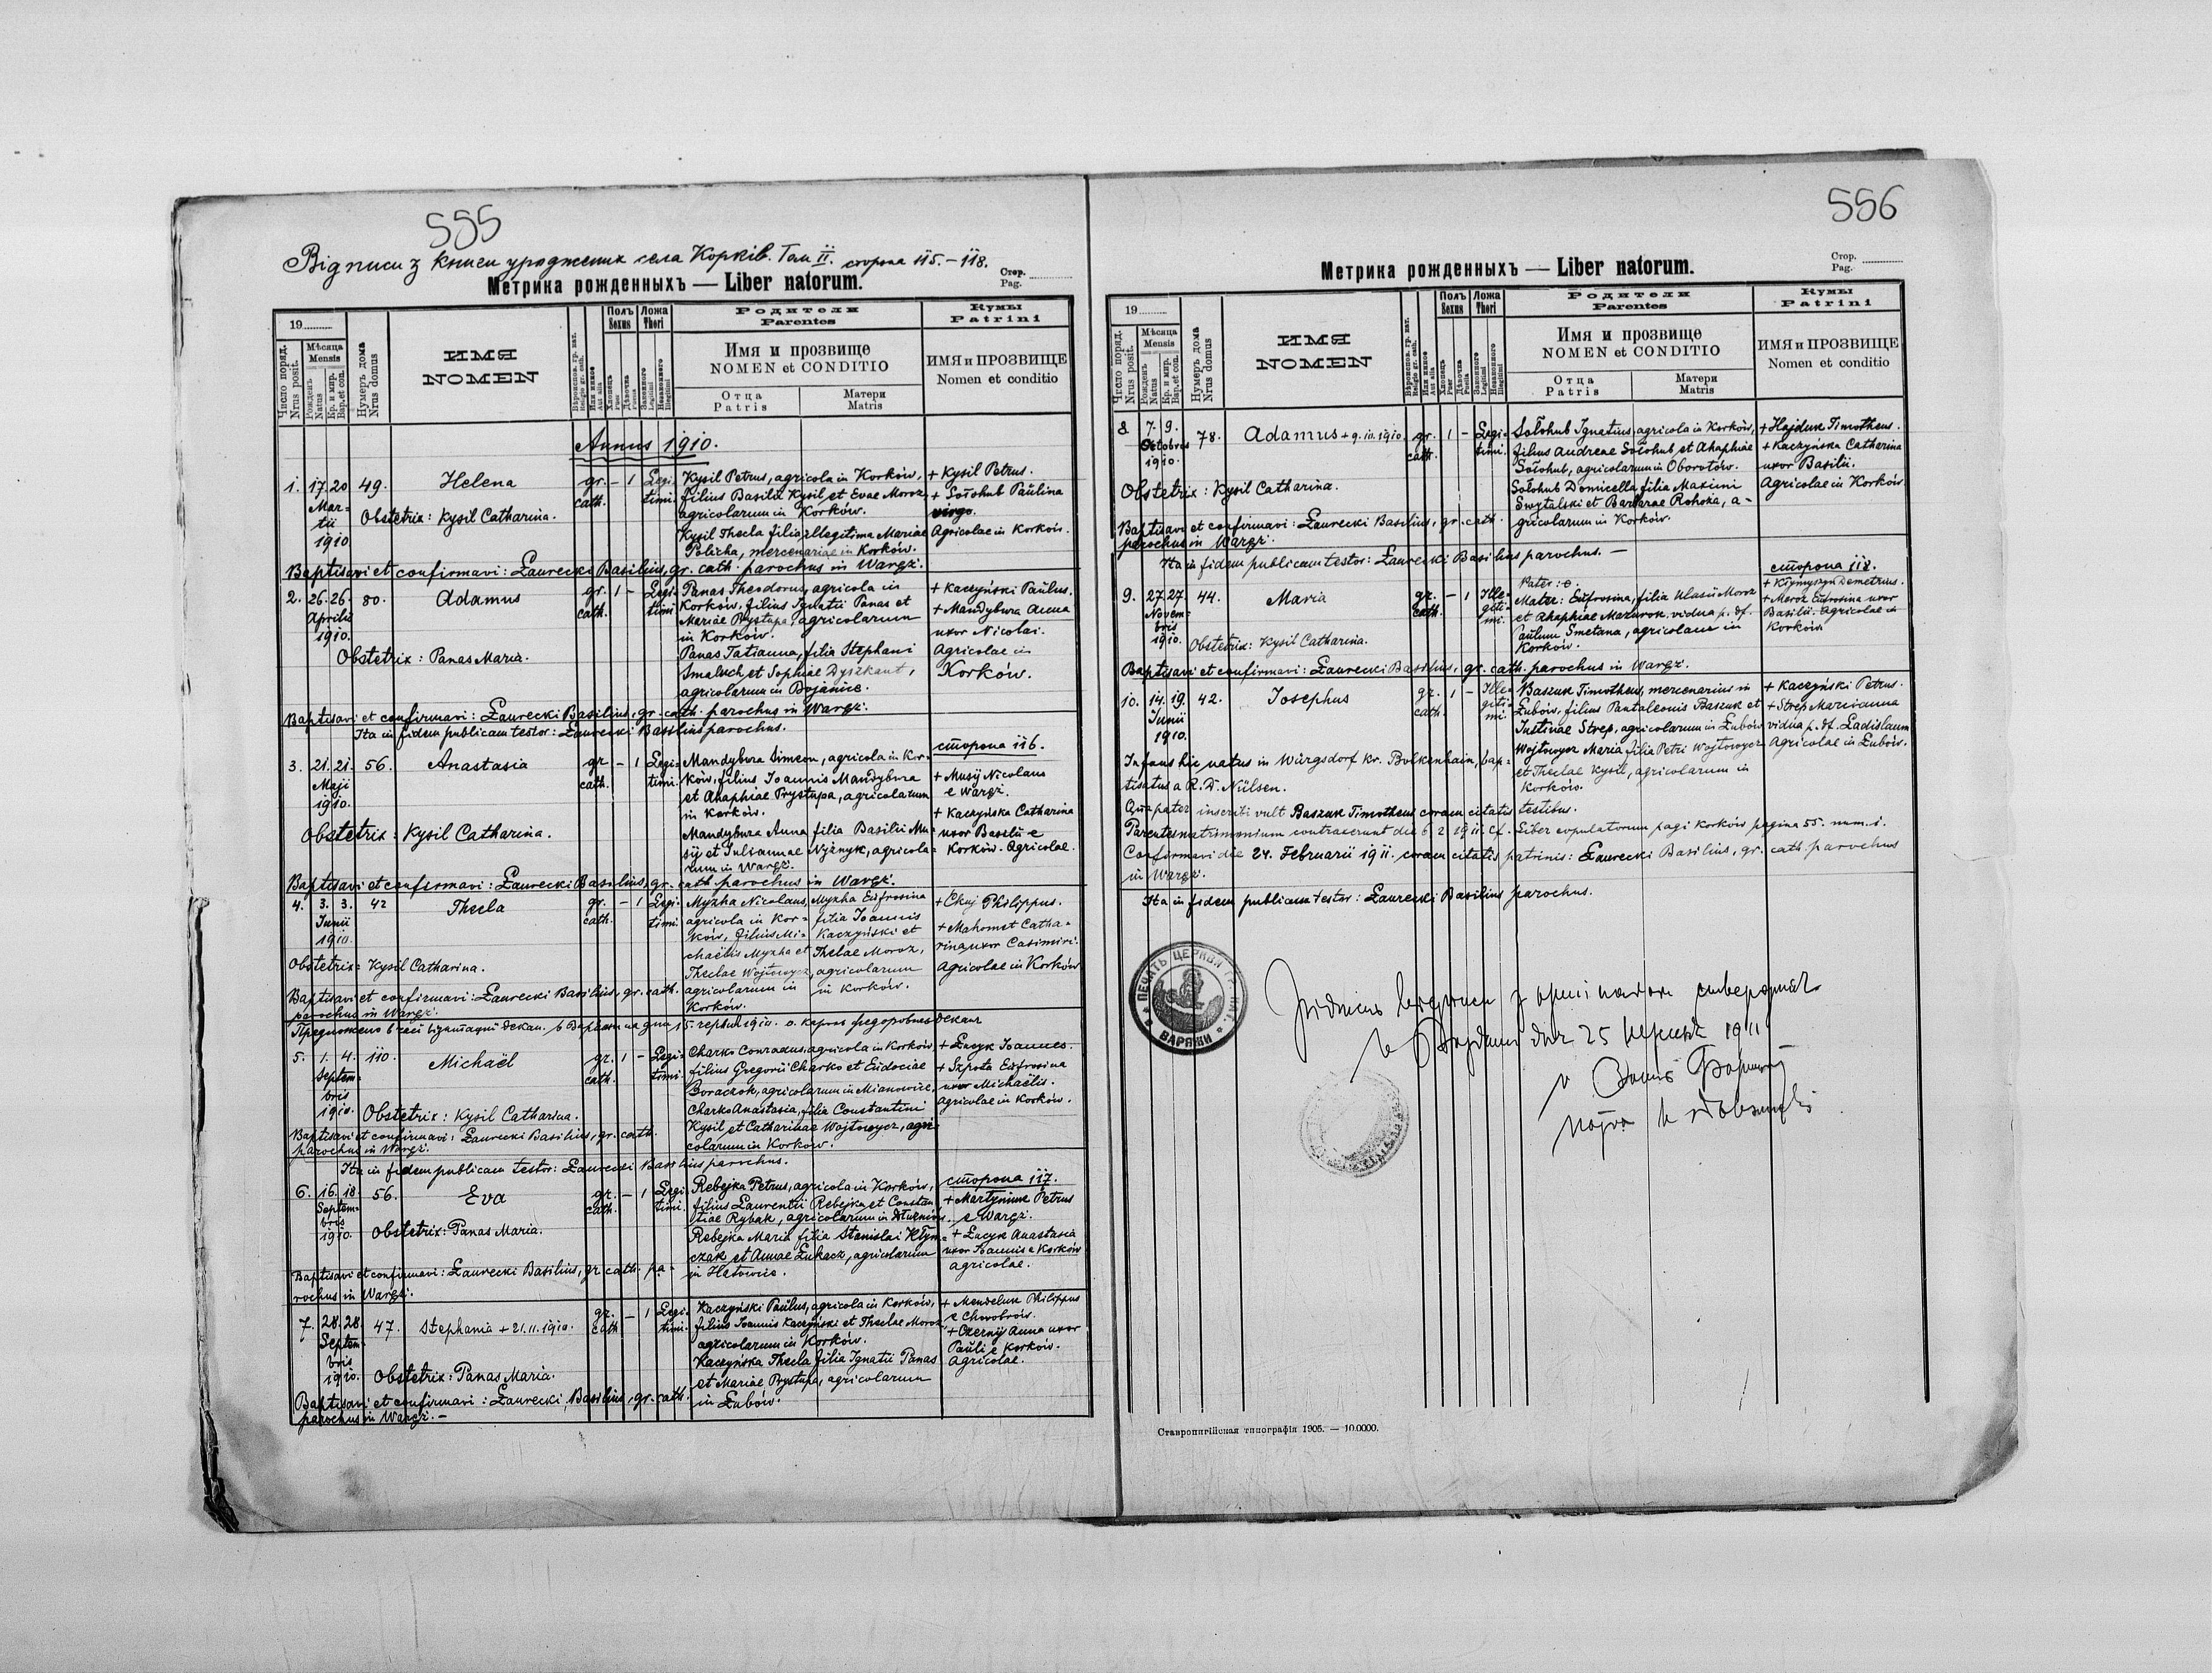 555
Відписи з книги уроджених села Корків. Том II. сторона 115.-118.
Метрика рожденныхъ — Liber natorum.
Стор.
Pag.
19
Число поряд. Nrus posit.
Мѣсяца Mensis
Рожденъ Natus
Кр. и мир. Bap. et con.
Нумеръ дома Nrus domus
ИМЯ NOMEN
Полъ Sexus
Ложа Thori
Родители Parentes
Имя и прозвище NOMEN et CONDITIO
Отца Patris
Матери Matris
Кумы Patrini
ИМЯ и ПРОЗВИЩЕ Nomen et conditio
Annus 1910.
1. 17. 20 Martii 1910 49. Helena gr. cath. - 1 Legitimi.
Kysil Petrus, agricola in Korków,
filius Basilii Kysil et Evae Moroz,
agricolarum in Korków.
Kysil Thecla filia illegitima Mariae
Policha, mercenariae in Korków.
+ Kysil Petrus.
+ Sołohub Paŭlina
virgo.
Agricolae in Korków.
Obstetrix: Kysil Catharina.
Baptisavi et confirmavi: Ławrecki Basilius, gr. cath. parochus in Waręż.
2. 26. 26. Aprilis 1910. 80. Adamus gr. cath. 1 - Legitimi
Panas Theodorus, agricola in
Korków, filius Ignatii Panas et
Mariae Prystupa, agricolarum
in Korków.
Panas Tatianna, filia Stephani
Smaluch et Sophiae Dyszkant,
agricolarum in Bojanice.
+ Kaczyński Paŭlus.
+ Mandybura Anna
uxor Nicolai.
Agricolae in
Korków.
Obstetrix: Panas Maria.
Baptisavi et confirmavi: Ławrecki Basilius, gr. cath. parochus in Waręż.
Ita in fidem publicam testor: Ławrecki Basilius parochus.
сторона 116.
3. 21. 21. Maji 1910. 56. Anastasia gr. cath. - 1 Legitimi.
Mandybura Simeon, agricola in Korków,
filius Joannis Mandybura
et Ahaphiae Prystupa, agricolarum
in Korków.
Mandybura Anna filia Basilii Musij
et Juliannae Nyżnyk, agricolarum
in Waręż.
+ Musij Nicolaus
e Waręż.
+ Kaczyńska Catharina
uxor Basilii e
Korków. Agricolae.
Obstetrix: Kysil Catharina.
Baptisavi et confirmavi: Ławrecki Basilius, gr. cath. parochus in Waręż.
4. 3. 3. Junii 1910. 42 Thecla gr. cath. - 1 Legitimi.
Myzha Nicolaus, agricola in Korków, filius Michaëlis Myzha et Theclae Wojtowycz, agricolarum in Korków.
Myzha Eŭfrosina filia Joannis Kaczyński et Theclae Moroz, agricolarum in Korków.
+ Chuj Philippus.
+ Mahomet Catharina,
uxor Casimiri.
Agricolae in Korków
Obstetrix: Kysil Catharina.
Baptisavi et confirmavi: Ławrecki Basilius, gr. cath.
parochus in Waręż.
5. 1. 4. Septembris 1910. 110. Michaël gr. cath. 1 - Legitimi.
Charko Conradus, agricola in Korków,
filius Gregorii Charko et Eŭdociae
Boraczok, agricolarum in Mianowice.
Charko Anastasia, filia Constantini
Kysil et Catharinae Wojtowycz, agricolarum
in Korków.
+ Łucyk Joannes.
+ Szpota Eŭfrosina
uxor Michaëlis.
Agricolae in Korków.
Obstetrix: Kysil Catharina.
Baptisavi et confirmavi: Ławrecki Basilius, gr. cath.
parochus in Waręż.
Ita in fidem publicam testor: Ławrecki Basilius parochus.
сторона 117.
6. 16. 18. Septembris 1910. 56. Eva gr. cath. - 1 Legitimi.
Rebejka Petrus, agricola in Korków,
filius Laurentii Rebejka et Constantiae
Rybak, agricolarum in
Rebejka Maria filia Stanislai Kłymczak
et Annae Łukacz, agricolarum
in Hatowice.
+ Martyniuk Petrus
e Waręż.
+ Łucyk Anastasia
uxor Joannis e Korków
agricolae.
Obstetrix: Panas Maria.
Baptisavi et confirmavi: Ławrecki Basilius, gr. cath. parochus
in Waręż.
7. 28. 28. Septembris 1910. 47. Stephania + 21.11.1910. gr. cath. - 1 Legitimi.
Kaczyński Paŭlus, agricola in Korków,
filius Joannis Kaczyński et Theclae Moroz
agricolarum in Korków.
Kaczyńska Thecla filia Ignatii Panas
et Mariae Prystupa, agricolarum
in Łubów.
+ Mendeluk Philippus
e Chorobrów.
+ Czernij Anna uxor
Paŭli e Korków.
Agricolae.
Obstetrix: Panas Maria.
Baptisavi et confirmavi: Ławrecki Basilius, gr. cath.
parochus in Waręż. -
556
Метрика рожденныхъ — Liber natorum.
Стор.
Pag.
19
Число поряд. Nrus posit.
Мѣсяца Mensis
Рожденъ Natus
Кр. и мир. Bap. et con.
Нумеръ дома Nrus domus
ИМЯ NOMEN
Полъ Sexus
Ложа Thori
Родители Parentes
Имя и прозвище NOMEN et CONDITIO
Отца Patris
Матери Matris
Кумы Patrini
ИМЯ и ПРОЗВИЩЕ Nomen et conditio
8 7. 9. Octobris 1910. 78. Adamus + 9.10.1910. gr. cath. 1 - Legitimi.
Sołohub Ignatius, agricola in Korków,
filius Andreae Sołohub, et Ahaphiae
Sołohub, agricolarum in Oborotów.
Sołohub Domicella filia Maximi
Swytalski et Barbarae Rohoża, agricolarum
in Korków.
+ Hajduk Timotheus.
+ Kaczyńska Catharina
uxor Basilii.
Agricolae in Korków
Obstetrix: Kysil Catharina.
Baptisavi et confirmavi: Ławrecki Basilius, gr. cath.
parochus in Waręż.
Ita in fidem publicam testor: Ławrecki Basilius parochus. —
сторона 118.
9. 27. 27. Novembris 1910. 44. Maria gr. cath. - 1 Illegitimi.
Pater: 0.
Mater: Eŭfrosina, filia Ulasii Moroz
et Ahaphiae Mazurok, vidua p. df.
Paŭlum Smetana, agricolam in
Korków.
+ Kłymyszyn Demetrius.
+ Moroz Eŭfrosina uxor
Basilii. Agricolae in
Korków.
Obstetrix: Kysil Catharina.
Baptisavi et confirmavi: Ławrecki Basilius, gr. cath. parochus in Waręż.
10. 14. 19. Junii 1910. 42. Josephus gr. cath. 1 - Illegitimi.
Baszuk Timotheus, mercenarius in
Łubów, filius Pantaleonis Baszuk et
Justinae Strep, agricolarum in Łubów
Wojtowycz Maria filia Petri Wojtowycz
et Theclae Kysil, agricolarum in
Korków.
+ Kaczyński Petrus.
+ Strep Marianna
vidua p. df. Ladislaum
Agricolae in Łubów.
Infans hic natus in Würgsdorf Kr. Bolkenhain, baptisatus
a R. D. Nülsen.
Qua pater inscribi vult Baszuk Timotheus coram citatis testibus.
Parentes matrimonium contraxerunt die 6. 2. 1911. Cf. Liber copulatorum pagi Korków pagina 55. num. 1.
Confirmavi die 24. Februarii 1911. coram citatis patrinis: Ławrecki Basilius, gr. cath. parochus
in Waręż.
Ita in fidem publicam testor: Ławrecki Basilius parochus.
ПЕЧАТЬ ЦЕРКВИ
ВАРЯЖИ
25
1911
Ставропигійская типографія 1905. — 10.0000.